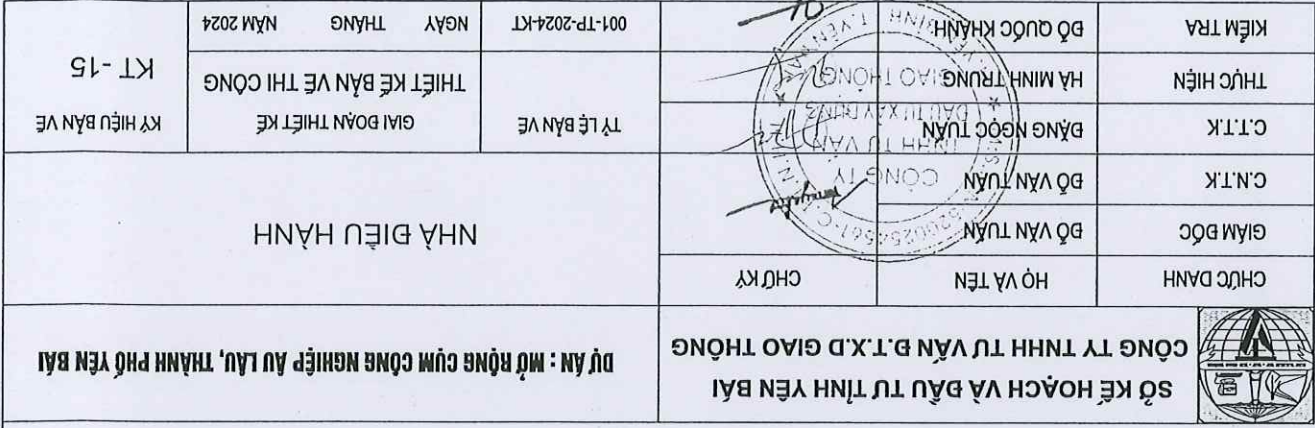 SỞ KẾ HOẠCH VÀ ĐẦU TƯ TỈNH YÊN BÁI
CÔNG TY TNHH TƯ VẤN Đ.T.X.D GIAO THÔNG
DỰ ÁN : MỞ RỘNG CỤM CÔNG NGHIỆP ÂU LÂU, THÀNH PHỐ YÊN BÁI
CHỨC DANH HỌ VÀ TÊN CHỮ KÝ
GIÁM ĐỐC ĐỖ VĂN TUẤN
C.N.T.K ĐỖ VĂN TUẤN
C.T.T.K ĐẶNG NGỌC TUẤN
THỰC HIỆN HÀ MINH TRUNG
KIỂM TRA ĐỖ QUỐC KHÁNH
NHÀ ĐIỀU HÀNH
TỶ LỆ BẢN VẼ
001-TP-2024-KT
GIAI ĐOẠN THIẾT KẾ
THIẾT KẾ BẢN VẼ THI CÔNG
NGÀY THÁNG NĂM 2024
KÝ HIỆU BẢN VẼ
KT -15
CÔNG TY
TNHH TƯ VẤN
ĐẦU TƯ XÂY DỰNG
GIAO THÔNG